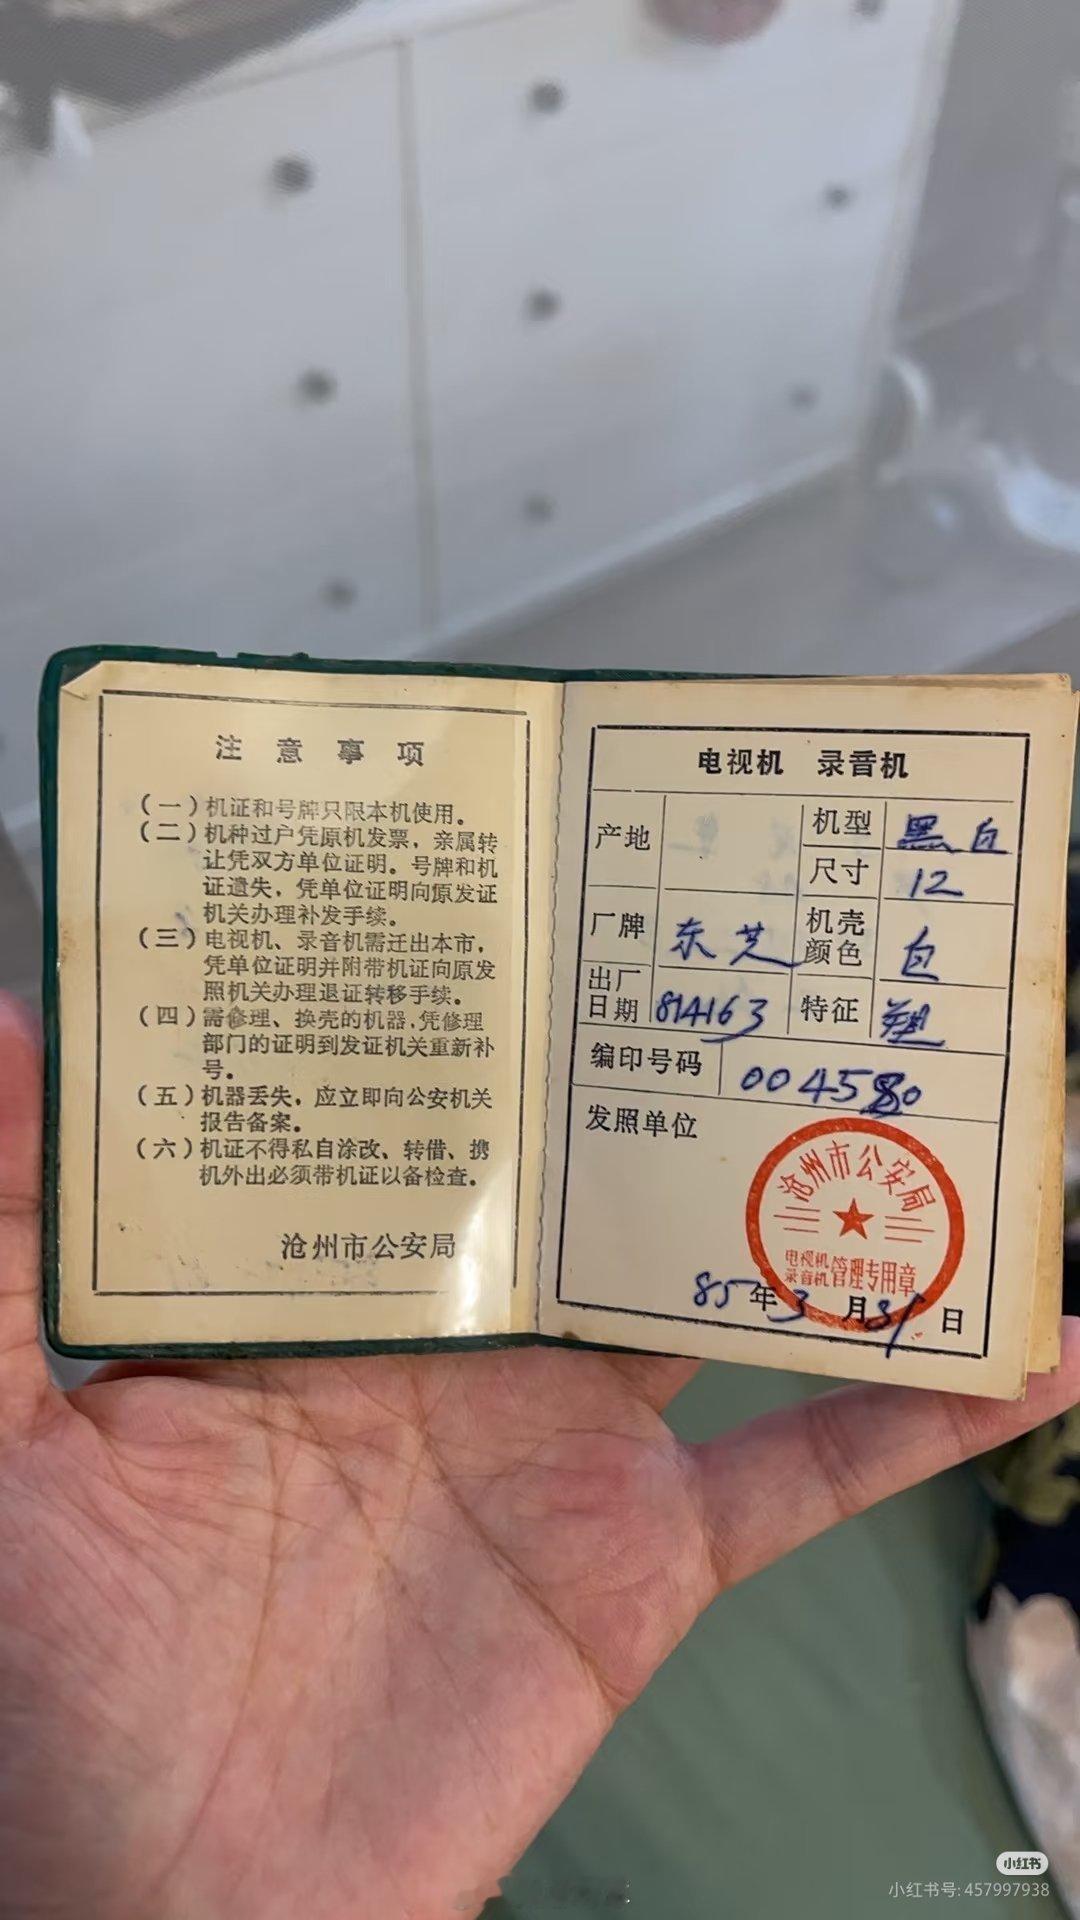 注意事项
(一)机证和号牌只限本机使用。
(二)机种过户凭原机发票，亲属转
让凭双方单位证明。号牌和机
证遗失，凭单位证明向原发证
机关办理补发手续。
(三)电视机、录音机需迁出本市，
凭单位证明并附带机证向原发
照机关办理退证转移手续。
(四)需修理、换壳的机器，凭修理
部门的证明到发证机关重新补
号。
(五)机器丢失，应立即向公安机关
报告备案。
(六)机证不得私自涂改、转借、携
机外出必须带机证以备检查。
沧州市公安局
电视机 录音机
产地
机型 黑白
尺寸 12
厂牌 东芝
机壳颜色 白
出厂日期 814163
特征
编印号码 004580
发照单位
沧州市公安局
电视机录音机管理专用章
85年3月31日
小红书
小红书号: 457997938